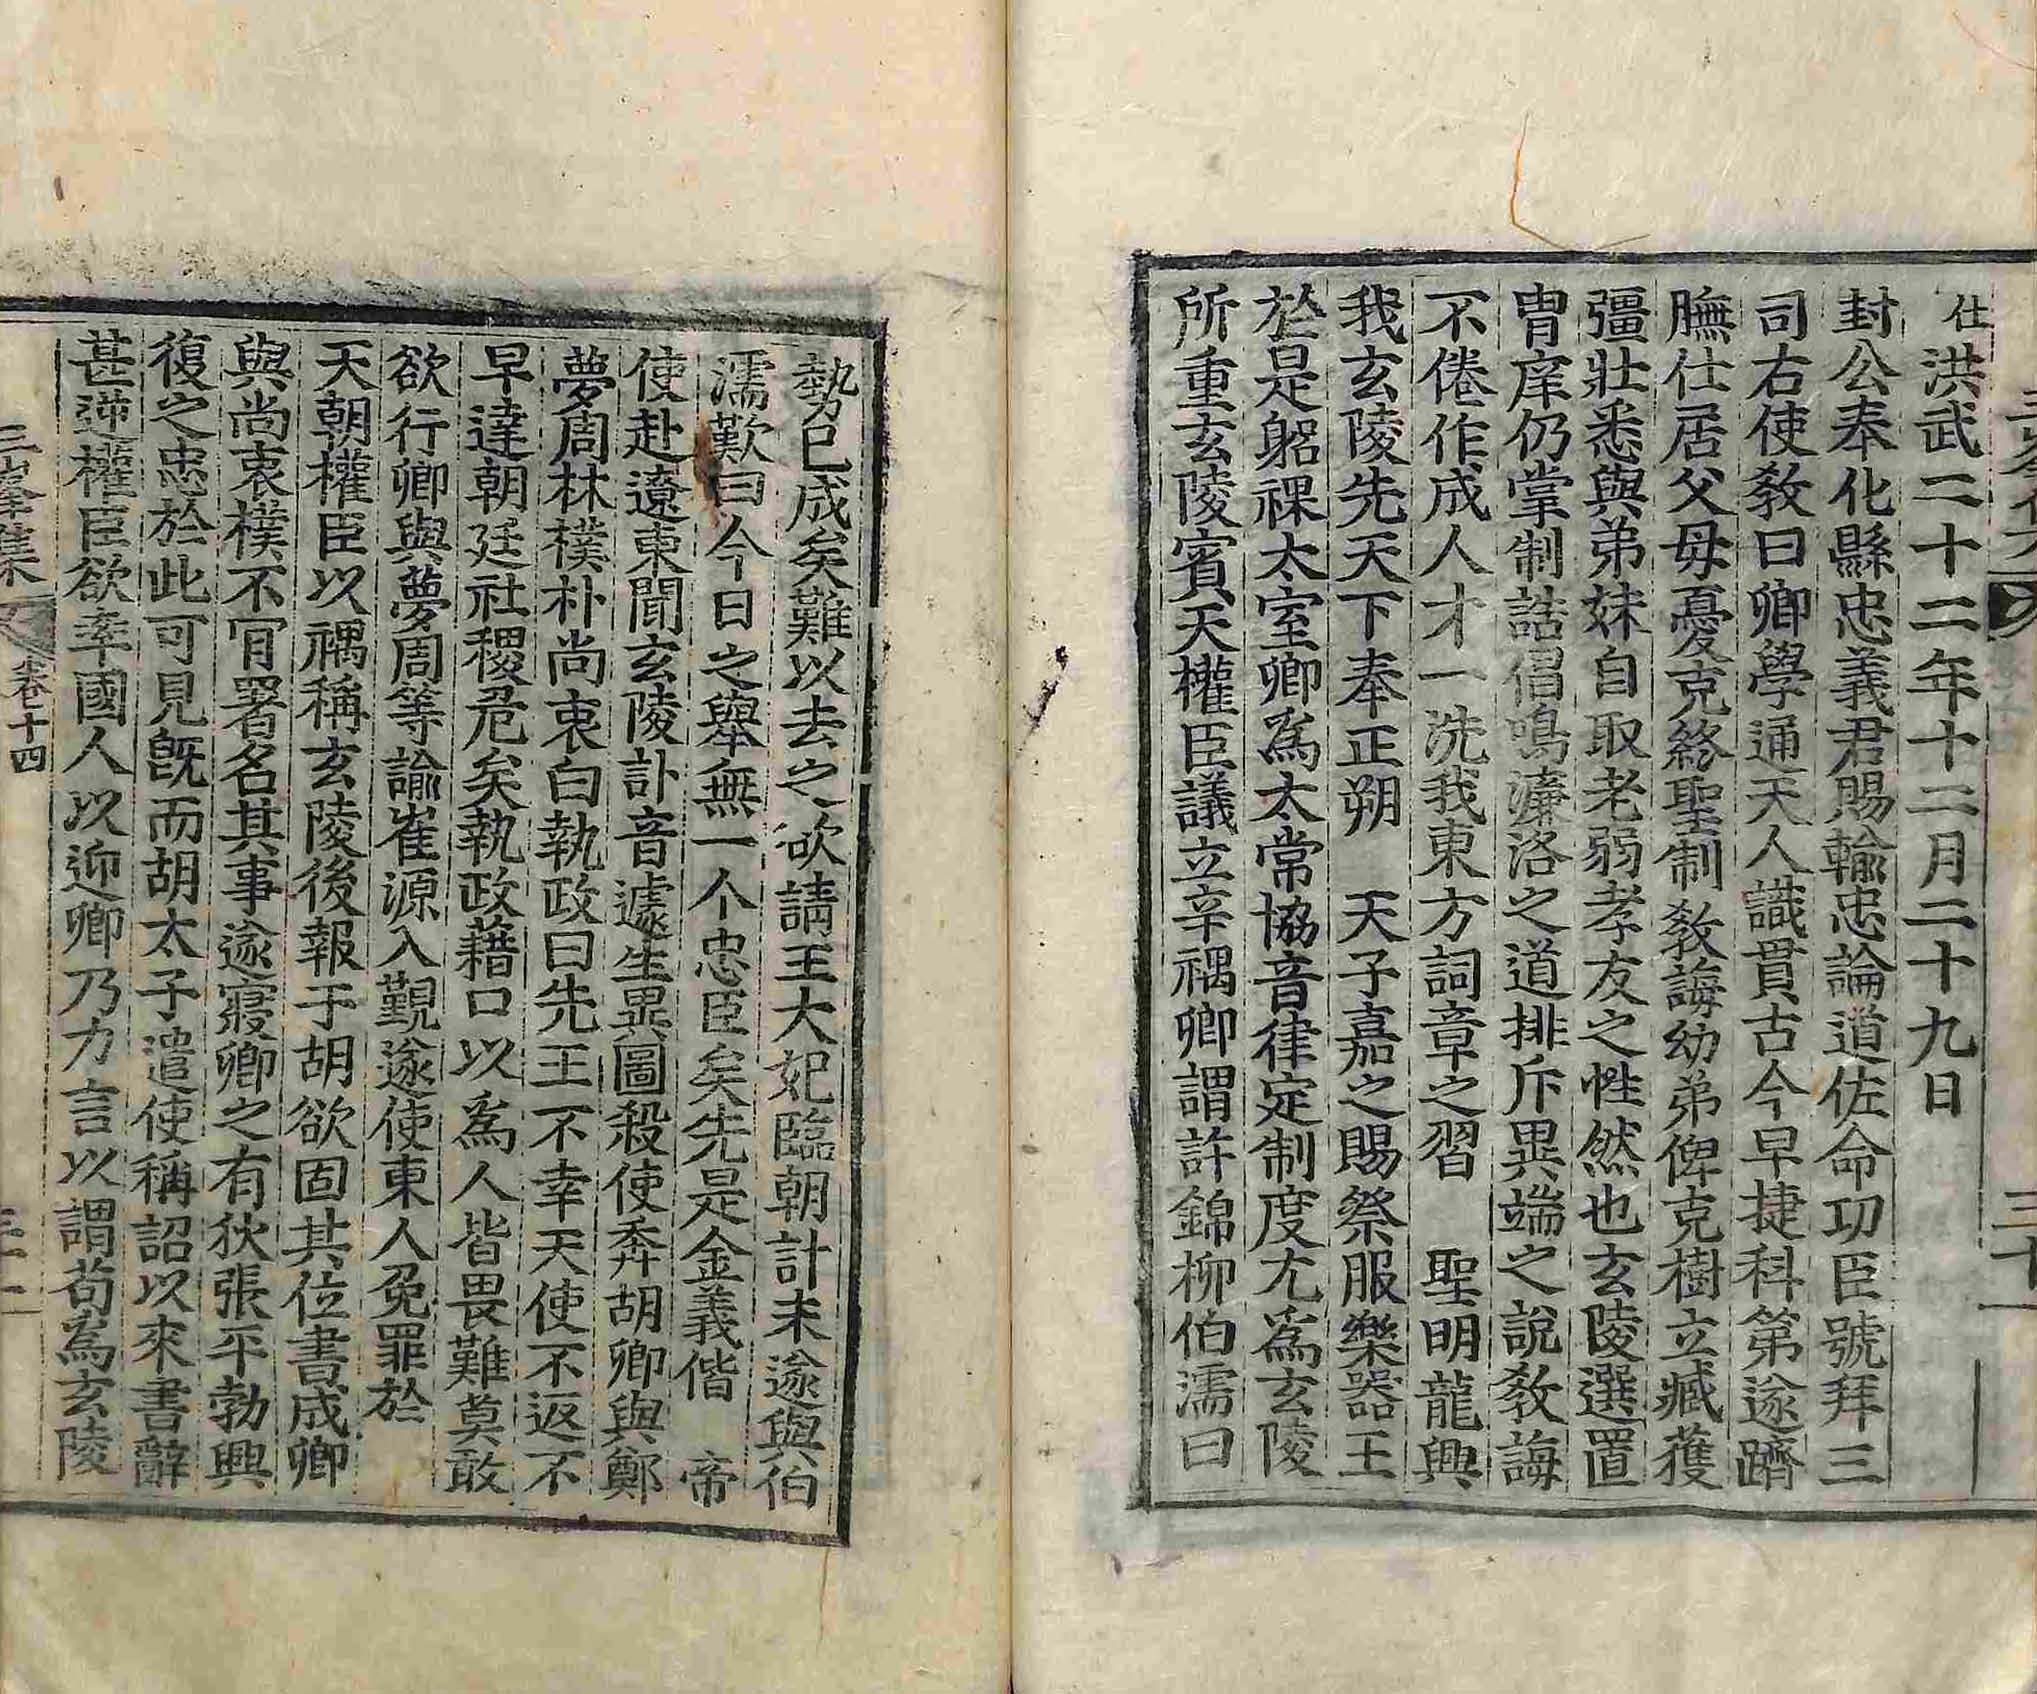 仕
洪武二十二年十二月二十九日
封公奉化縣忠義君賜輸忠論道佐命功臣號拜三
司右使敎曰卿學通天人識貫古今早捷科第遂躋
膴仕居父母憂克終聖制敎誨幼弟俾克樹立臧獲
彊壯悉與弟妹自取老弱孝友之性然也玄陵選置
胄庠仍掌制誥倡鳴濂洛之道排斥異端之說敎誨
不倦作成人才一洗我東方詞章之習　聖明龍興
我玄陵先天下奉正朔　天子嘉之賜祭服樂器王
於是躬祼太室卿爲太常協音律定制度尤爲玄陵
所重玄陵賓天權臣議立辛禑卿謂許錦柳伯濡曰
三十一
勢已成矣難以去之欲請王大妃臨朝計未遂與伯
濡歎曰今日之擧無一个忠臣矣先是金義偕　帝
使赴遼東聞玄陵訃音遽生異圖殺使奔胡卿與鄭
夢周林樸朴尚衷白執政曰先王不幸天使不返不
早達朝廷社稷危矣執政藉口以爲人皆畏難莫敢
欲行卿與夢周等諭崔源入覲遂使東人免罪於
天朝權臣以禑稱玄陵後報于胡欲固其位書成卿
與尚衷樸不肎署名其事遂寢卿之有狄張平勃興
復之忠於此可見旣而胡太子遣使稱詔以來書辭
甚逆權臣欲率國人以迎卿乃力言以謂苟爲玄陵
三峯集
卷十四